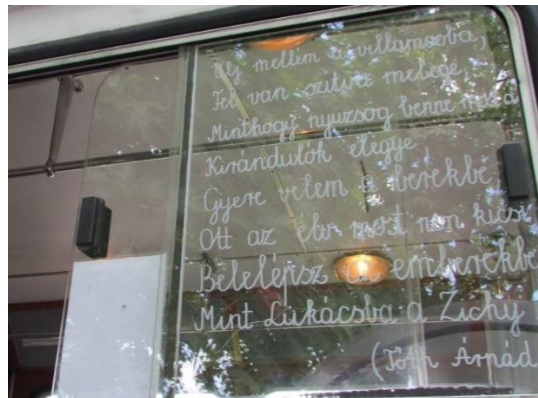 Ülj mellém a villamosba,
Fel van szítva melege,
Minthogy nyüzsög benne
Kirándulók elegye
Gyere velem a berekbe
Ott az elv most nem kicsi
Belelépsz az emberekbe
Mint Lukácsba a Zichy
(Tóth Árpád